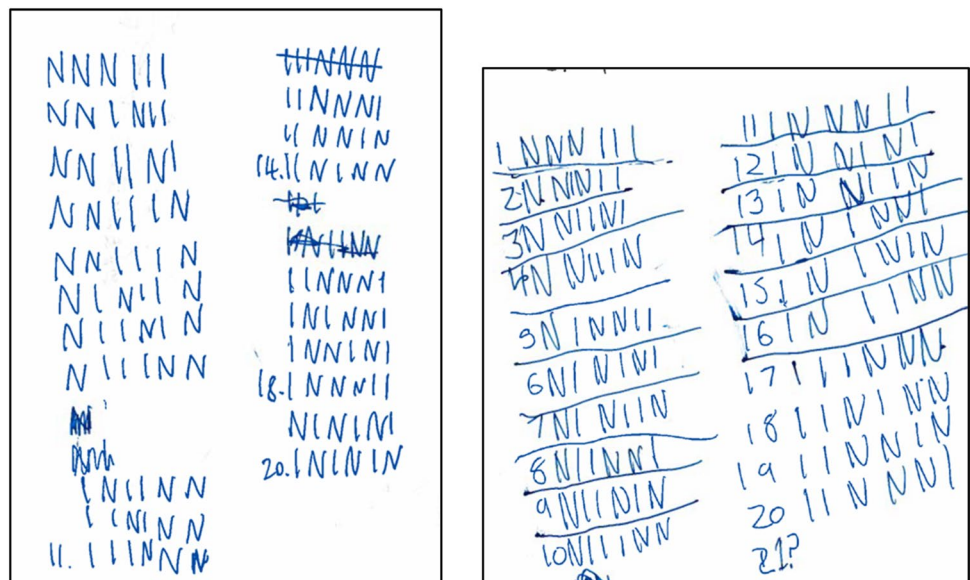 NNNIII
NNINII
NNIINI
NNIIIN
NNIIIN
NINIIN
NIININ
NIIINN
INIINN
IININN
11. IIINNN
IIINNN
IINNNI
IINNIN
14. IININN
IINNNI
ININNI
INNINI
18. INNNII
NININI
20. INININ
1 NNNIII
2 NNINII
3 NNIINI
4 NNIIIN
5 NINNII
6 NININI
7 NINIIN
8 NIINNI
9 NIININ
10 NIIINN
11 INNNII
12 INNINI
13 INNIIN
14 ININNI
15 INININ
16 INIINN
17 IIINNN
18 IININN
19 IINNIN
20 IINNNI
21?